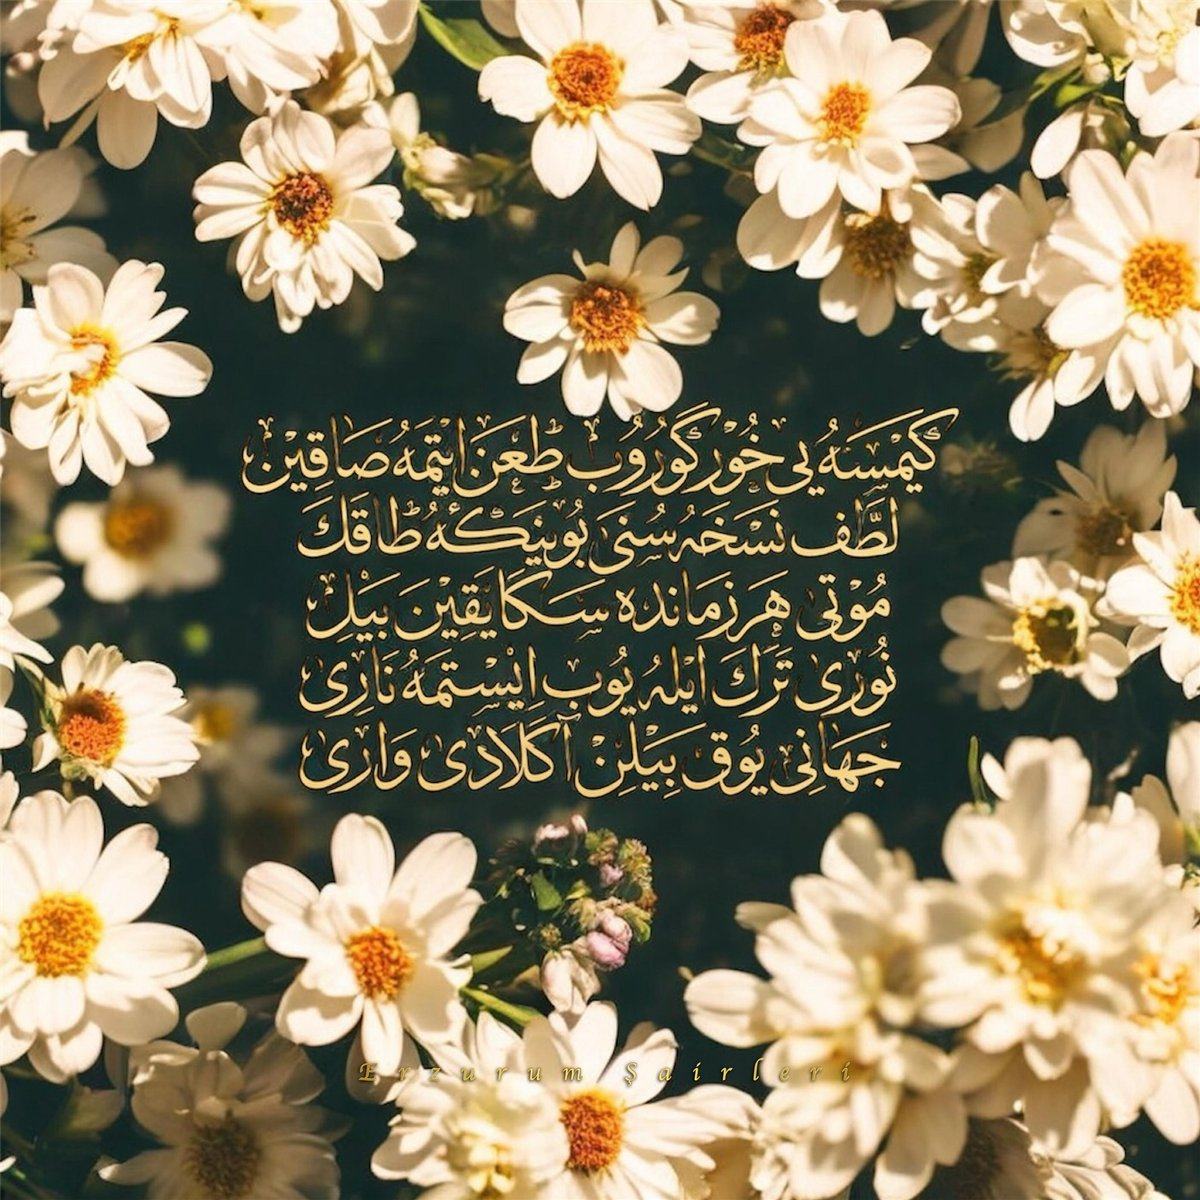 كَيْمْسَهُ يِي خُوْر گوُرُوُب طَعَن اِيتمَهُ صَاقِيْن
لُطَّف نَسْخَهُ سُنىَ بُويَنِكَهُ طاقكَ
مُوْتى هَر زمَانده سكَا يَقِيْن بَيْلِ
نُورِى تَرَكَ ايلهُ يُوب اِيْستمَهُ نَارِى
جَهَانِي يوُقَ بِيَلِنْ آكَلاَدى وَارِى
Erzurum Şairleri